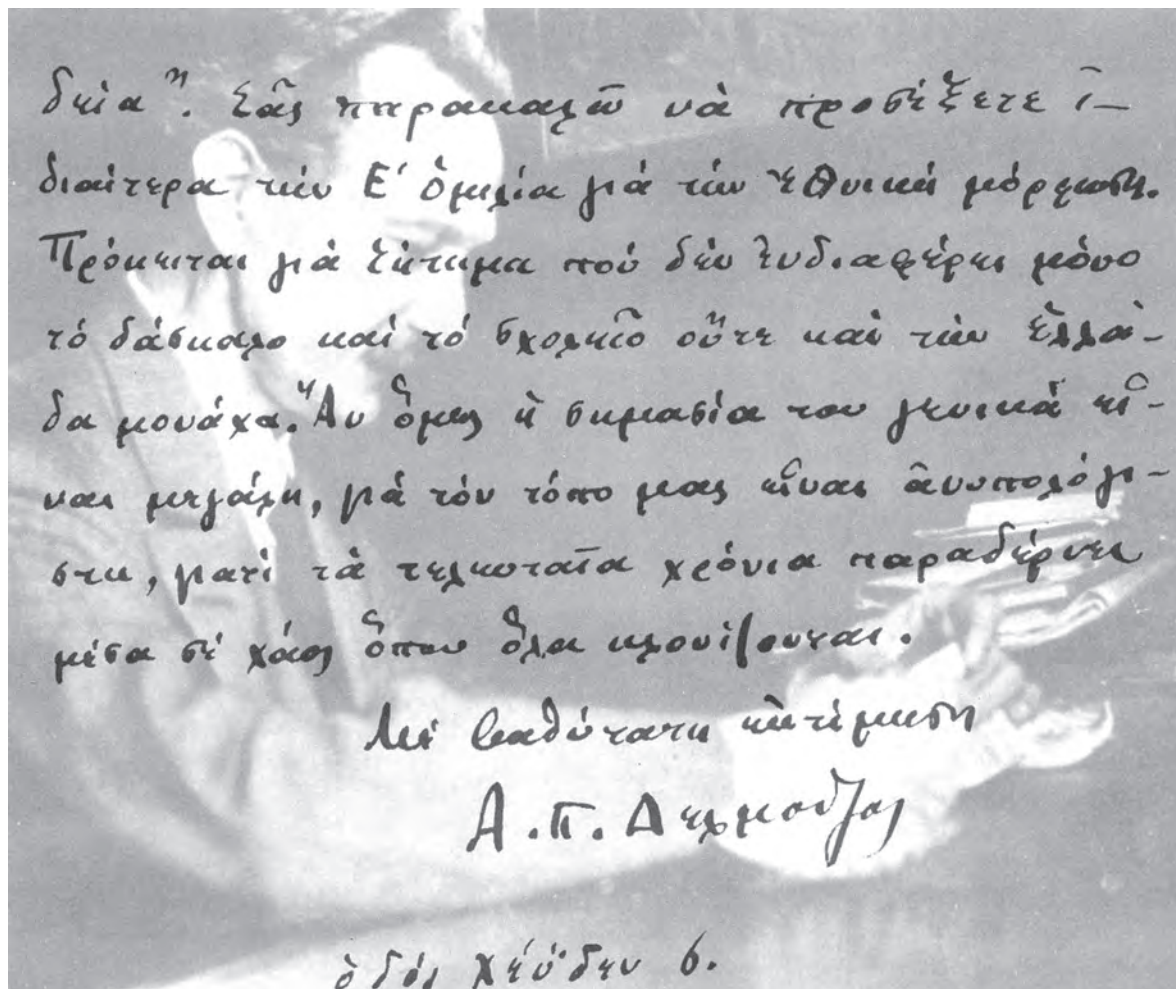 δεία". Σᾶς παρακαλῶ νὰ προσέξετε ἰ-
διαίτερα τὴν Ε´ ὁμιλία γιὰ τὴν ἐθνικὴ μόρφωση.
Πρόκειται γιὰ ζήτημα ποὺ δὲν ἐνδιαφέρει μόνο
τὸ δάσκαλο καὶ τὸ σχολεῖο οὔτε καὶ τὴν Ἑλλά-
δα μονάχα. Ἂν ὅμως ἡ σημασία του γενικὰ εἶ-
ναι μεγάλη, γιὰ τὸν τόπο μας εἶναι ἀνυπολόγι-
στη, γιατὶ τὰ τελευταῖα χρόνια παραδέρνει
μέσα σὲ χάος ὅπου ὅλα κλονίζουνται.
Μὲ βαθύτατη ἐκτίμηση
Α. Π. Δελμούζος
ὁδὸς Χέϋδεν 6.